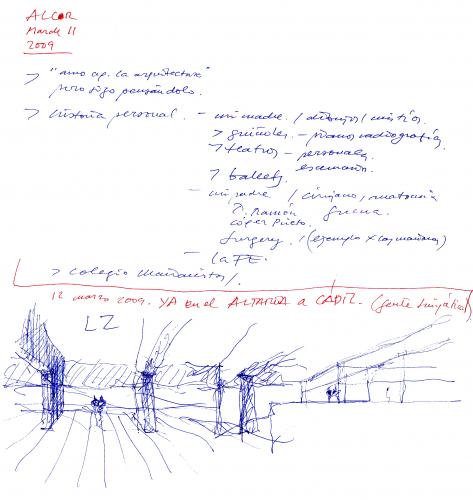 ALCOR
March 11
2009
> "amo a p. la arquitectura"
pero sigo pensándolo.
> historia personal. - mi madre / dibujos /
> guiñoles. - planos radiografías
> teatros - personales
escenarios
> ballets.
- mi padre / cirujano, anatomía
Ramón guerra
López Prieto.
Surgery. / (ejemplo x las mañanas)
- la FE.
> colegio /.
12 marzo 2009. YA en el ALTARIA a CADIZ. (gente simpática)
LZ